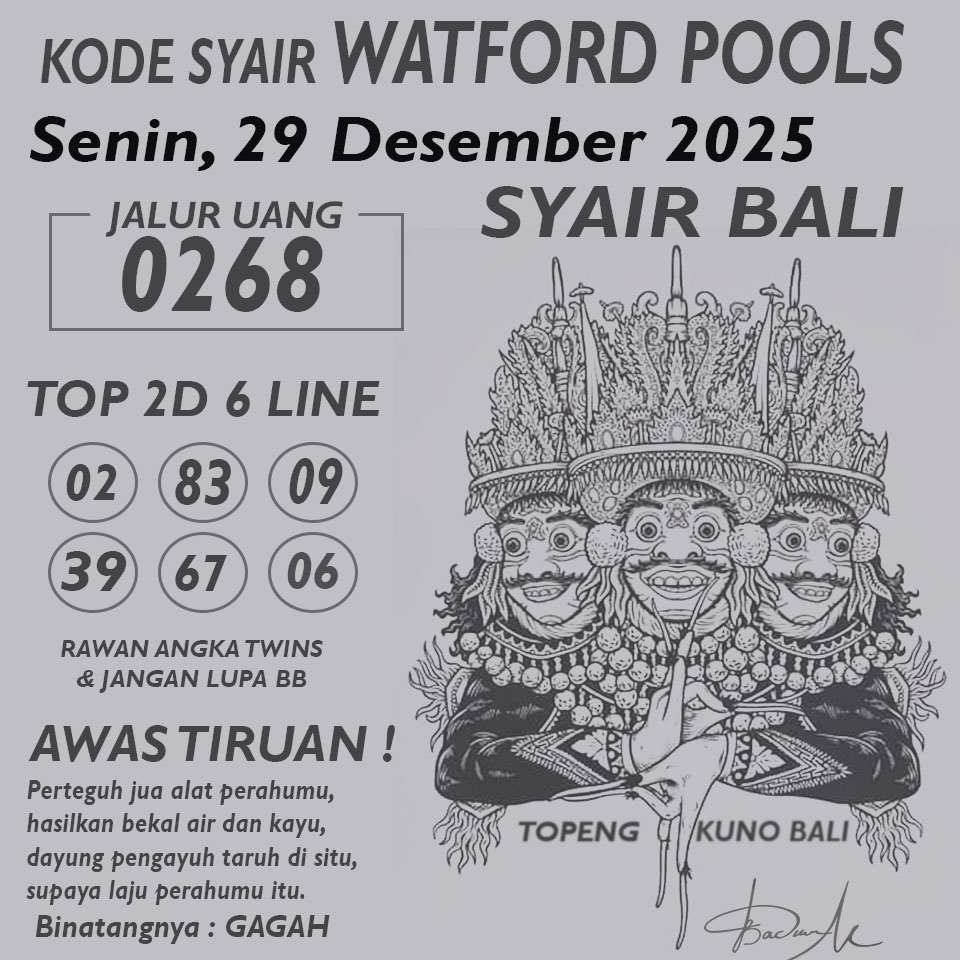 KODE SYAIR WATFORD POOLS
Senin, 29 Desember 2025
SYAIR BALI
JALUR UANG
0268
TOP 2D 6 LINE
02 83 09
39 67 06
RAWAN ANGKA TWINS
& JANGAN LUPA BB
AWAS TIRUAN !
Perteguh jua alat perahumu,
hasilkan bekal air dan kayu,
dayung pengayuh taruh di situ,
supaya laju perahumu itu.
Binatangnya : GAGAH
TOPENG KUNO BALI